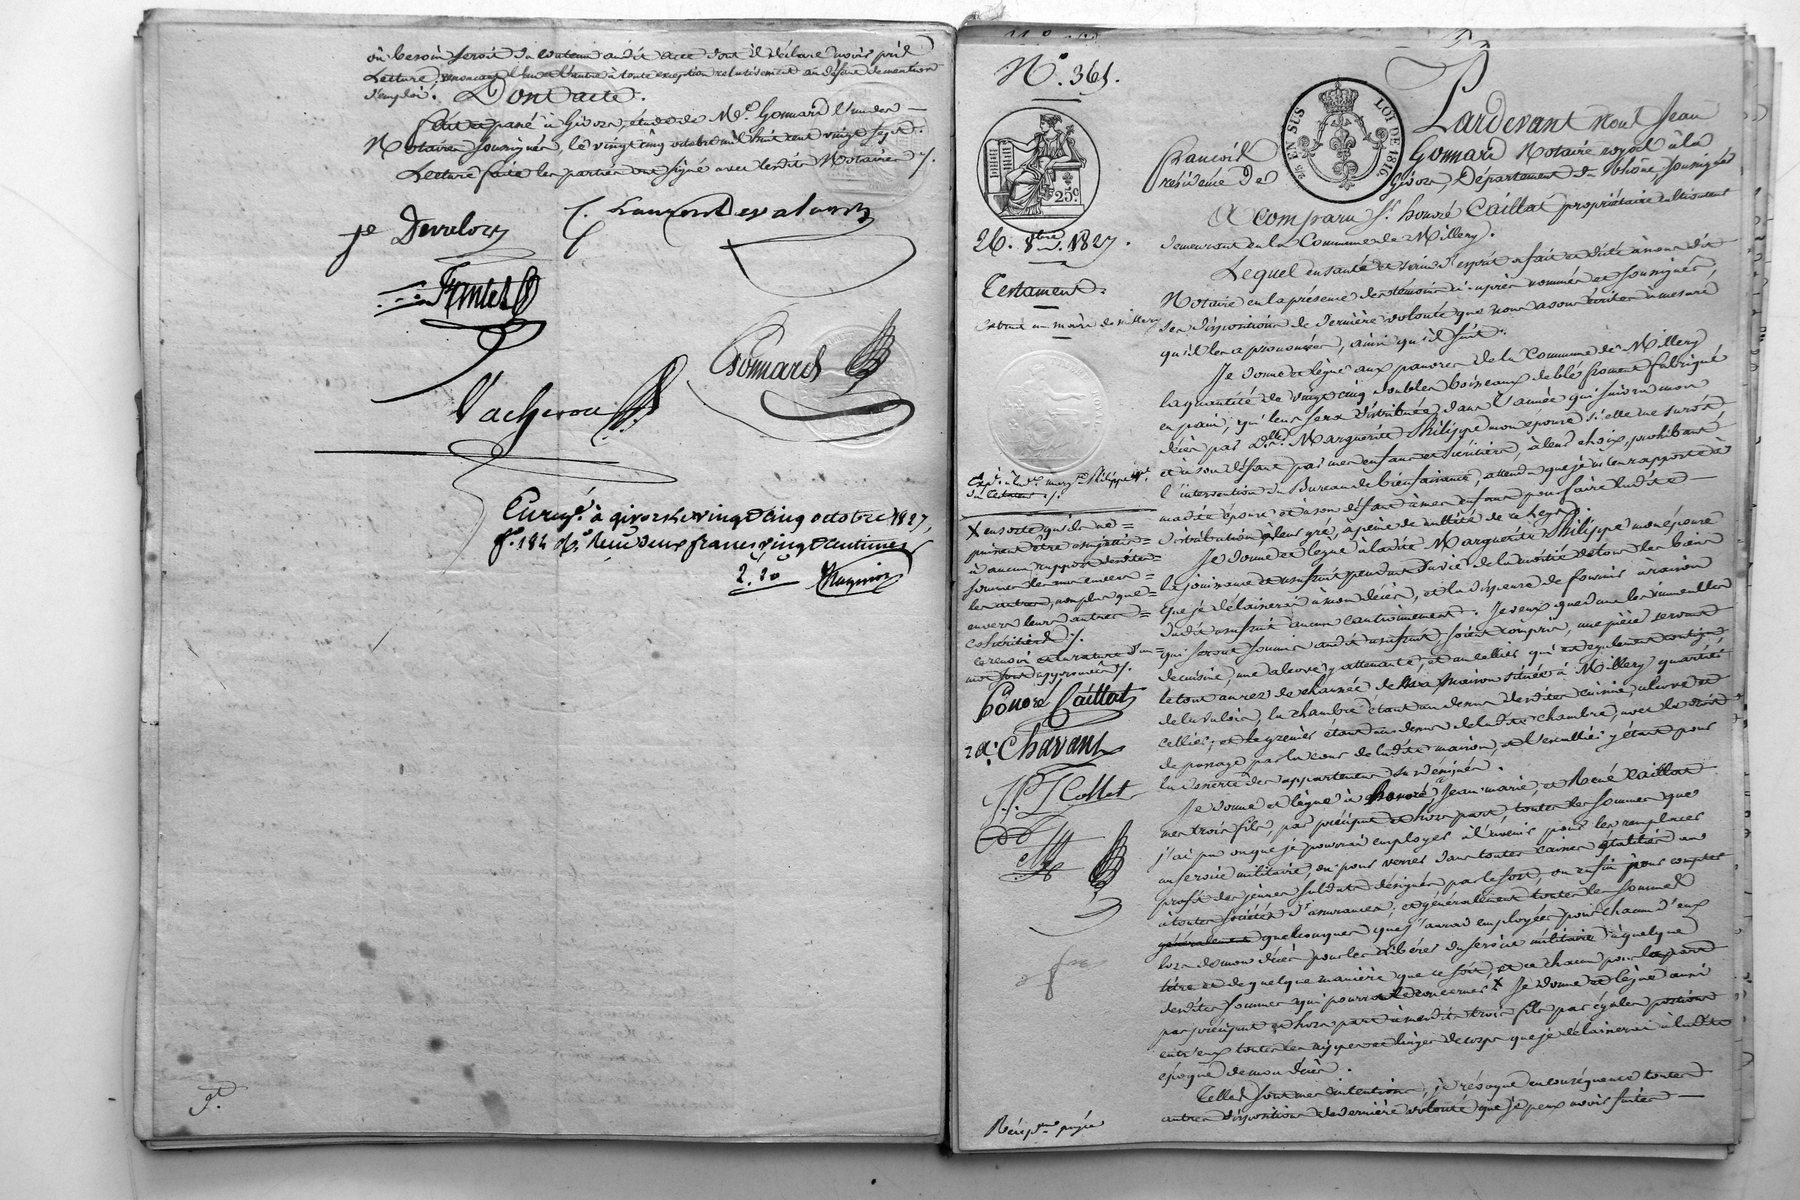 où besoin seroit du contenu audit acte dont il déclare avoir pris
Lecture, renonçant l'un et l'autre à toute exception relativement au défaut de mention
d'emploi. Dont acte.
Fait et passé à Givors, étude de Me. Gonnard l'un des
Notaires soussignés, le vingt cinq octobre mil huit cent vingt sept.
Lecture faite les parties ont signé avec lesdits Notaires ./.
Gonnard
Vacheron
Enregé. à givors le vingt cinq octobre 1827,
fo. 184 Ro. Reçu deux francs vingt centimes
2.20
No. 361.
25c.
2½ EN SUS LOI DE 1816
26. 8bre. 1827.
Testament.
Extrait au maire de millery
X en sorte qu'ils ne
puissent être assujettis
à aucun rapport desdites
sommes les uns envers
les autres, non plus que
envers leurs autres
cohéritiers ./.
Honoré Caillat
Chavant
Collet
Pardevant Nous Jean
François Gonnard Notaire royal à la
résidence de Givors, Département du Rhône, soussigné
A comparu Sr. honoré Caillat propriétaire cultivateur
demeurant en la Commune de Millery.
Lequel en santé et sain d'esprit a fait et dicté à nous dit
Notaire en la présence des témoins ci-après nommés et soussignés,
ses dispositions de dernière volonté que nous avons écrites à mesure
qu'il les a prononcées, ainsi qu'il suit.
Je donne et lègue aux pauvres de la Commune de Millery
la quantité de vingt cinq doubles boisseaux de blé froment fabriqué
en pain, qui leur sera distribuée dans l'année qui suivra mon
décès par De. Marguerite Philippe mon épouse si elle me survit
et à son défaut par mes enfans et héritiers, à leur choix, prohibant
l'intervention du Bureau de bienfaisance, attendu que je m'en rapporte à
madite épouse et à son défaut à mes enfans pour faire ladite
distribution à leur gré, à peine de nullité de ce legs.
Je donne et lègue à ladite Marguerite Philippe mon épouse
la jouissance et usufruit pendant sa vie de la moitié de tous les biens
que je délaisserai à mon décès, et la dispense de fournir à raison
dudit usufruit aucun cautionnement. Je veux que dans les immeubles
qui seront soumis audit usufruit, soient compris, une pièce servant
de cuisine, une alcove y attenante, et un cellier qui est également contigu
le tout au rez de chaussée de ma maison située à Millery quartier
la chambre étant au dessus desdites cuisine, alcove et
cellier; et le grenier étant au dessus de ladite chambre, avec le droit
de passage par la cour de ladite maison, et l'escalier y étant pour
la desserte des appartemens susdésignés.
Je donne et lègue à honoré, Jean marie, et René Caillat
mes trois fils, par préciput et hors part, toutes les sommes que
j'ai pu ou que je pourrai employer à l'avenir pour les remplacer
au service militaire, ou pour verser dans toutes caisses établies au
profit des jeunes soldats désignés par le sort, ou enfin pour compter
à toutes sociétés d'assurances; et généralement toutes les sommes
généralement quelconques que j'aurai employées pour chacun d'eux
lors de mon décès pour les libérer du service militaire à quelque
titre et de quelque manière que ce soit, et ce chacun pour la part
desdites sommes qui pourra le concerner X Je donne et lègue aussi
par préciput et hors part à mesdits trois fils par égales portions
entr'eux toutes les nippes et linges de corps que je délaisserai à ladite
époque de mon décès.
Telles sont mes intentions, je révoque en conséquence toutes
autres dispositions de dernière volonté que je peux avoir faites